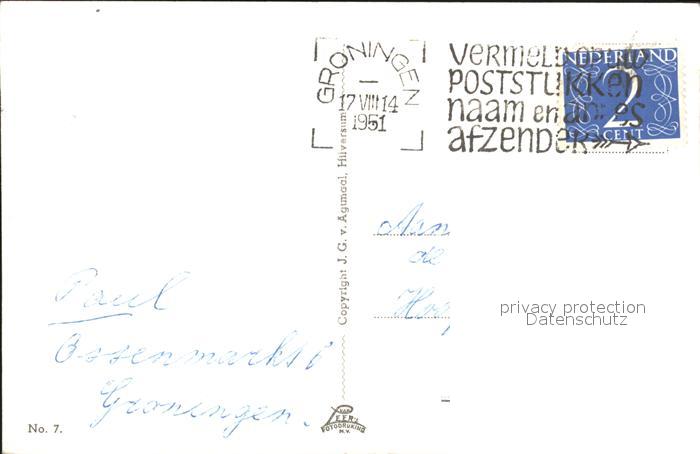 GRONINGEN
17 VIII 14
1951
VERMELD OP
POSTSTUKKEN
naam en adres
afzender
NEDERLAND
2
CENT
Copyright J. G. v. Agtmaal, Hilversum
Aan
de
Paul
Ossenmarkt 6
Groningen.
privacy protection
Datenschutz
VAN
LEER'S
FOTODRUKIND
N.V.
No. 7.